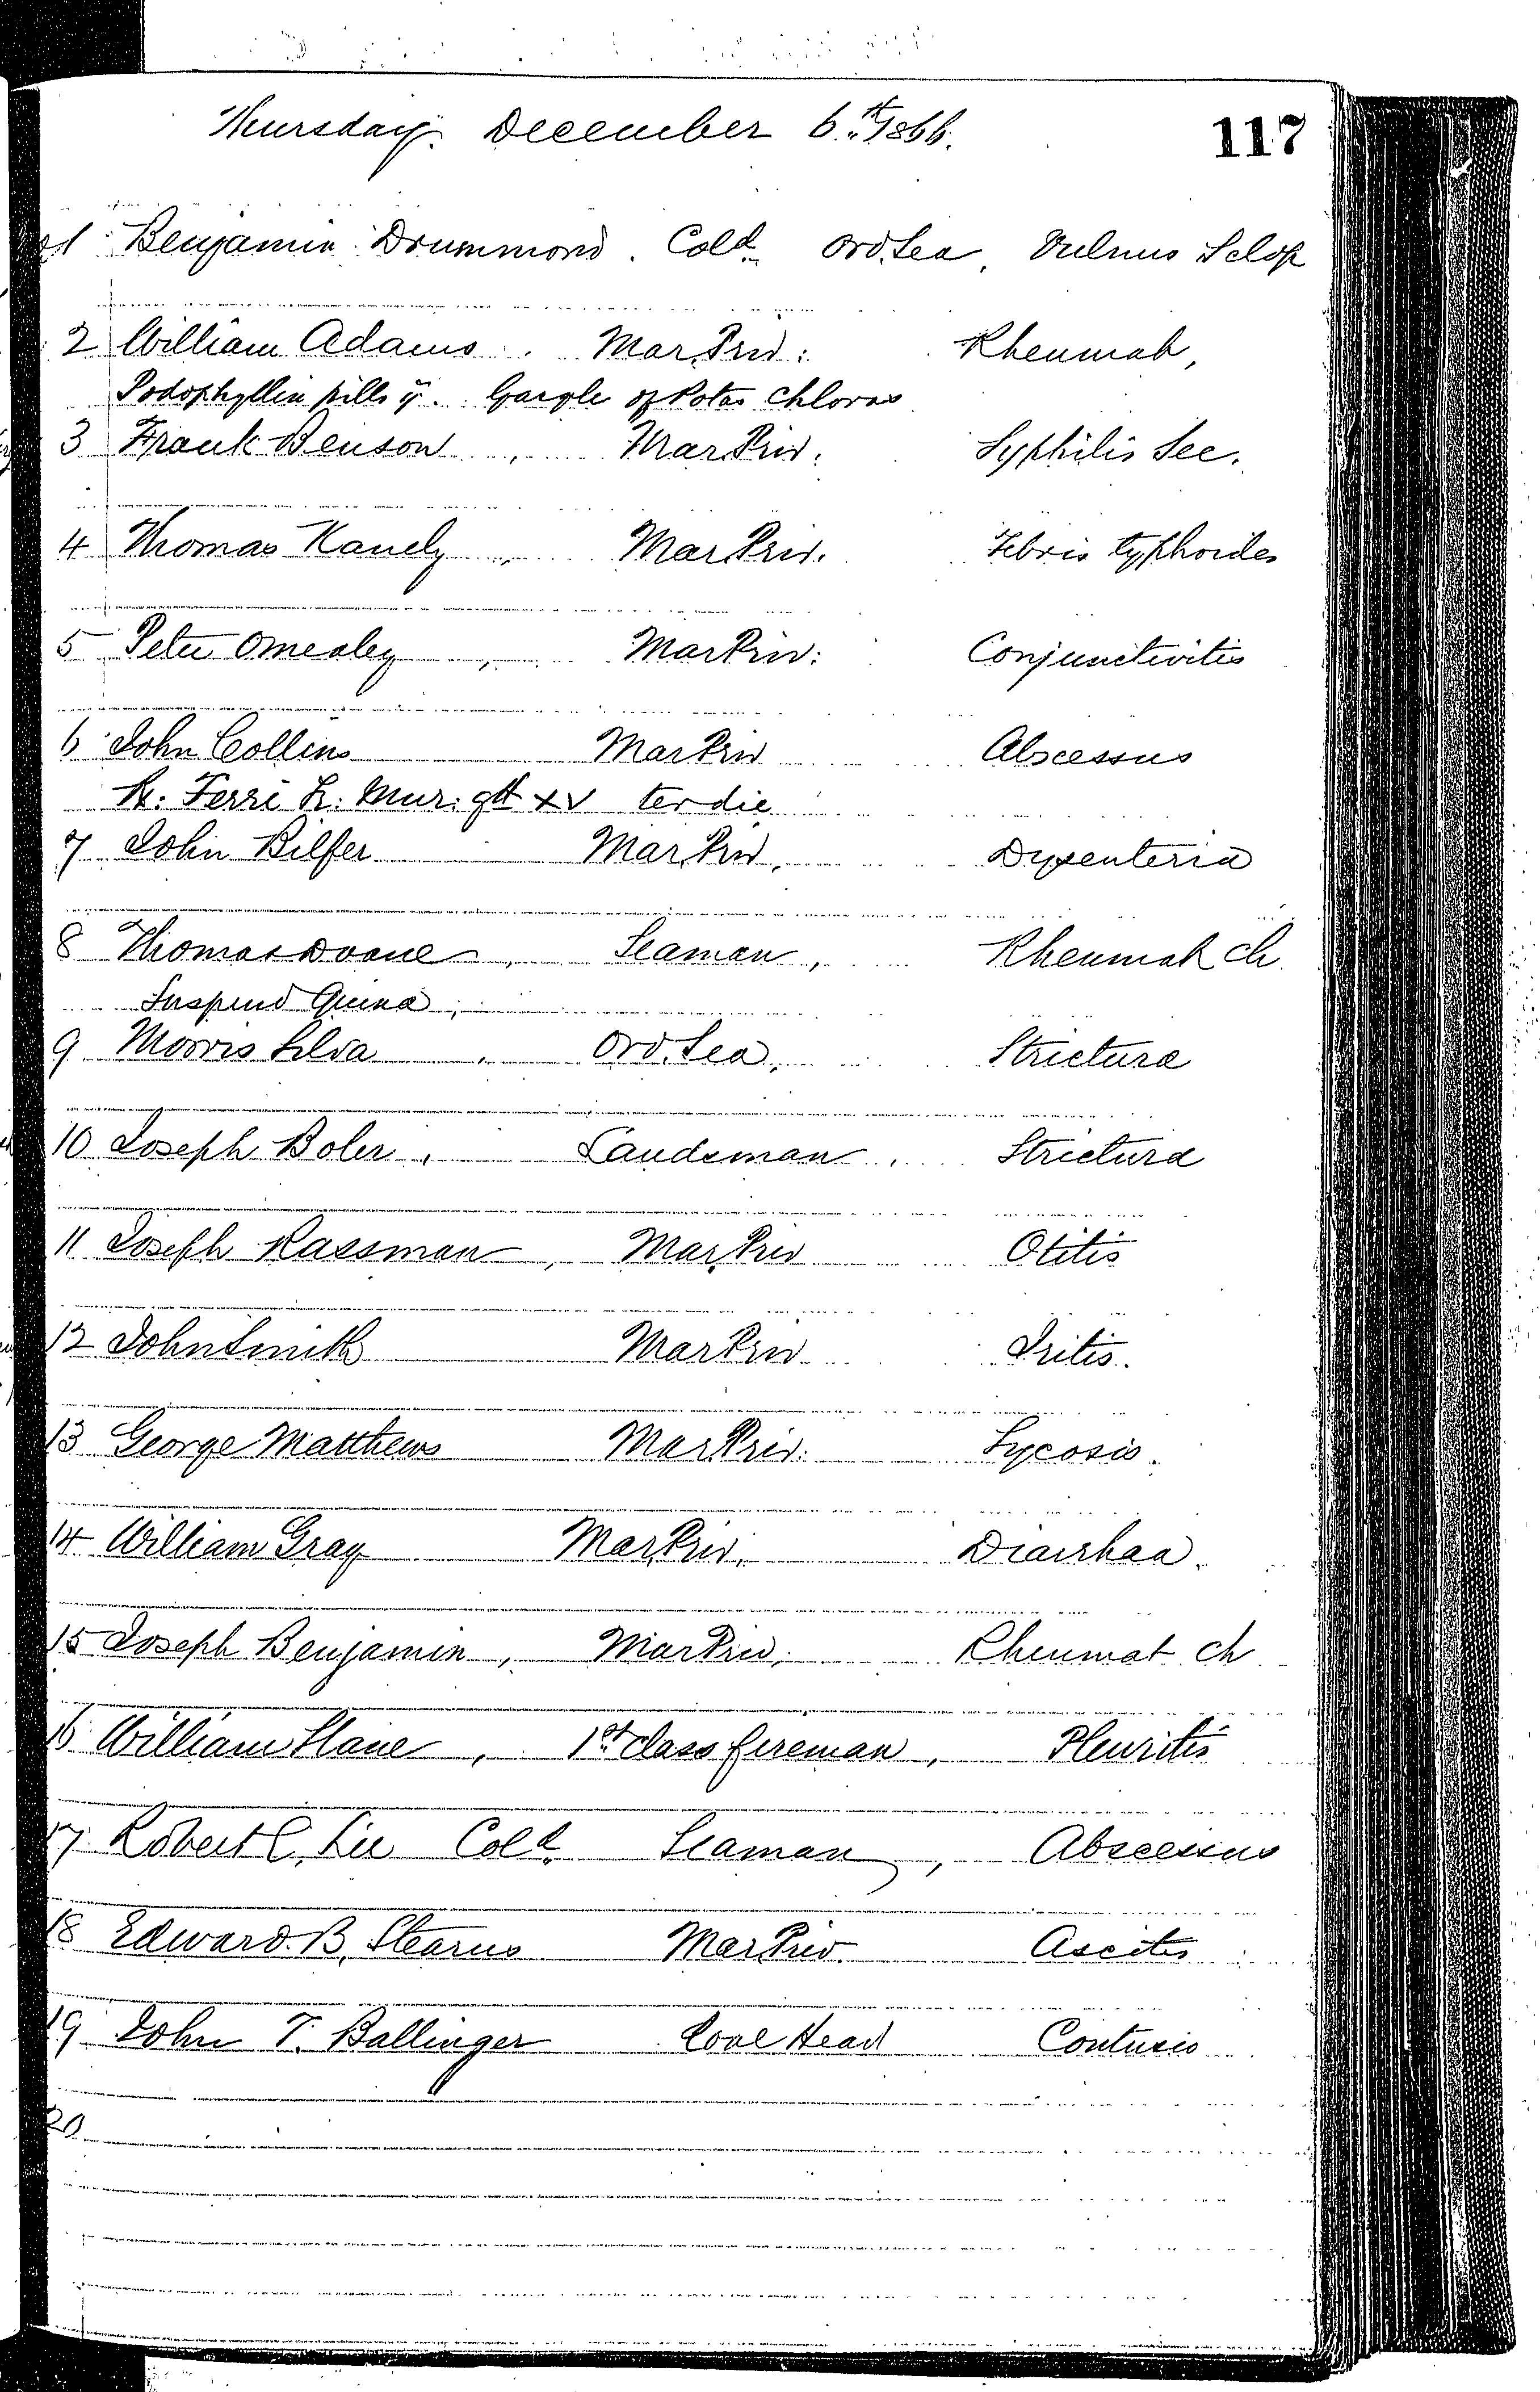 117
Thursday. December 6th 1866.
1 Benjamin Drummond. Cold Ord. Sea, Vulnus Sclop
2 William Adams. Mar. Priv: Rheumat,
Podophyllin pills ij. Gargle of Potas Chloras
3 Frank Benson, Mar. Priv. Syphilis Sec.
4 Thomas Kanely, Mar Priv. Febris typhoides
5 Peter Omealey, Mar Priv: Conjunctivitis
6 John Collins Mar Priv Abscessus
R. Ferri Mur: gtt XV ter die
7 John Bilfer Mar. Priv. Dysenteria
8 Thomas Doane, Seaman, Rheumat Ch
Suspend Quina
9 Morris Silva, Ord. Sea, Strictura
10 Joseph Boler, Landsman, Strictura
11 Joseph Rassman, Mar. Priv Otitis
12 John Smith Mar Priv Iritis.
13 George Matthews Mar. Priv: Sycosis.
14 William Gray Mar. Priv. Diarrhaa.
15 Joseph Benjamin, Mar Priv, Rheumat Ch
16 William Slane, 1st class fireman, Pleuritis
17 Robert C. Lee Cold Seaman, Abscessus
18 Edward. B. Stearns Mar. Priv. Ascites
19 John T. Ballinger Coal Head Contusio
20